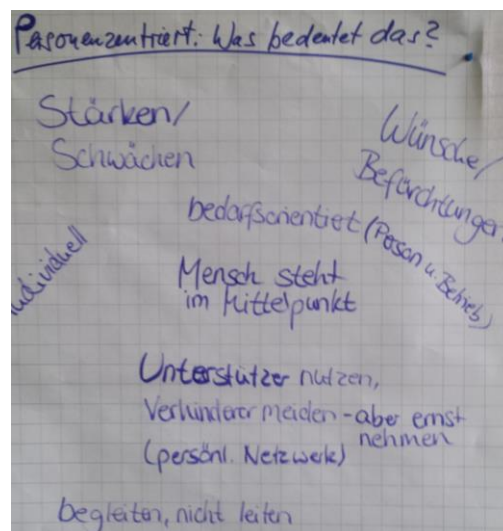 Personenzentriert: Was bedeutet das?
Stärken/
Schwächen
Wünsche/
Befürchtungen
bedarfsorientiert (Person u. Betrieb)
individuell
Mensch steht
im Mittelpunkt
Unterstützer nutzen,
Verhinderer meiden - aber ernst
nehmen
(persönl. Netzwerk)
begleiten, nicht leiten